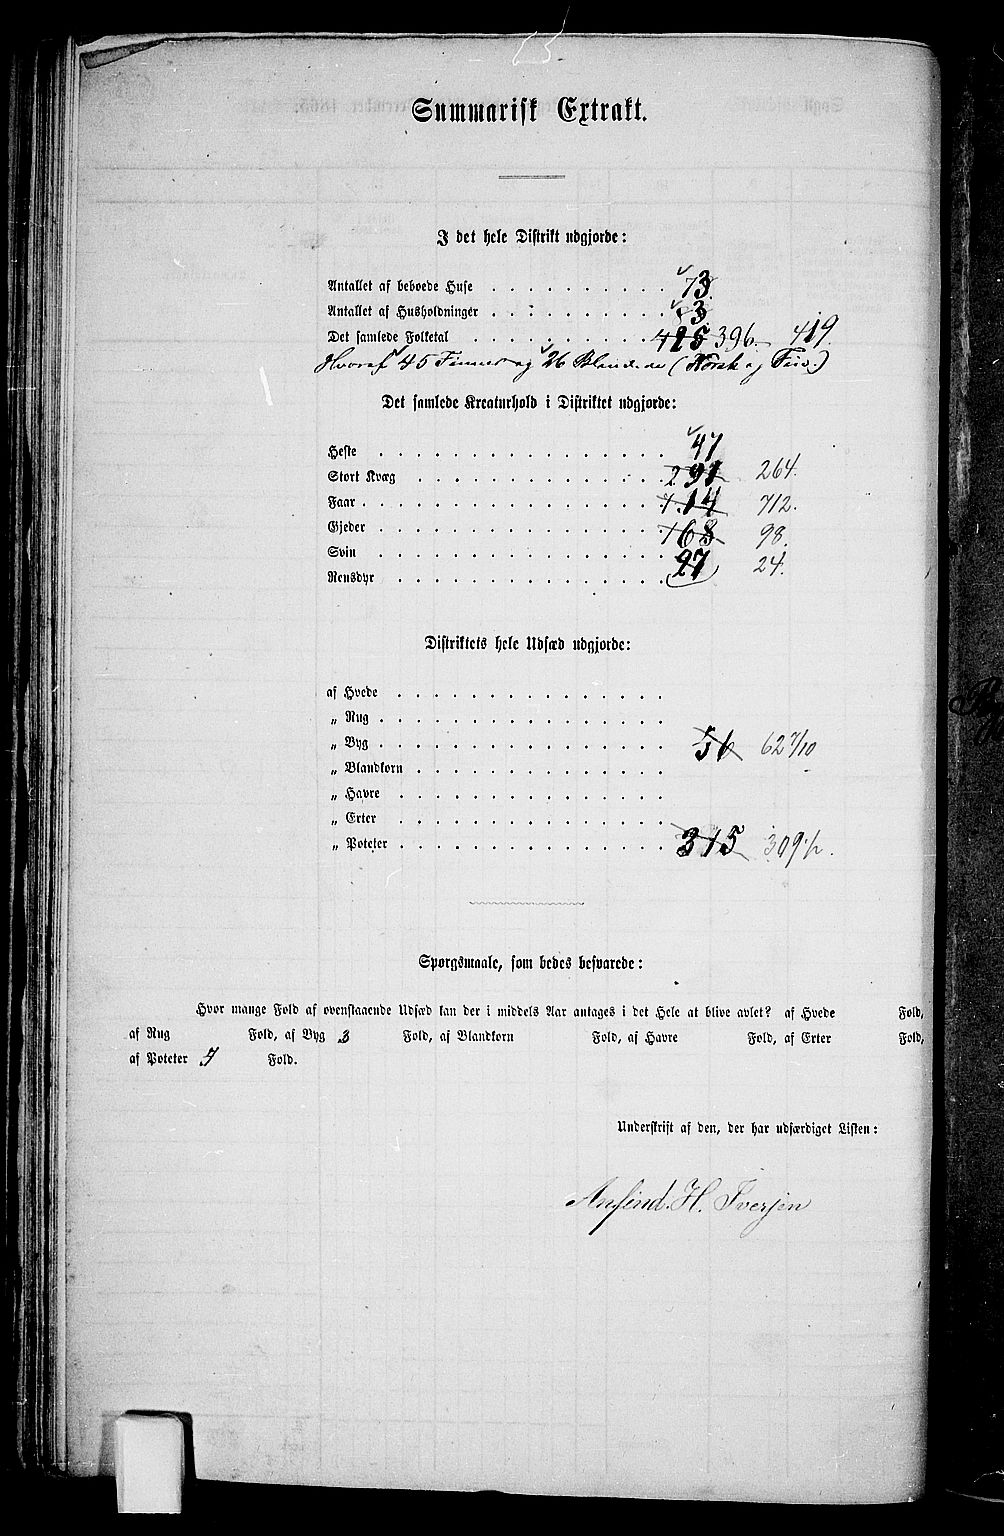 Summarisk Extrakt.
I det hele Distrikt udgjorde:
Antallet af beboede Huse . . . . . . . . . . 73
Antallet af Husholdninger . . . . . . . . . . 73
Det samlede Folketal . . . . . . . . . . 425 396 419.
Hvoraf 45 Finner og 26 Blandede (Norsk og Finn.)
Det samlede Kreaturhold i Distriktet udgjorde:
Heste . . . . . . . . . . 47
Stort Kvæg . . . . . . . . . . 291 264.
Faar . . . . . . . . . . 714 712.
Gjeder . . . . . . . . . . 168 98.
Svin . . . . . . . . . . 27 24.
Rensdyr . . . . . . . . . .
Distriktets hele Udsæd udgjorde:
af Hvede . . . . . . . . . .
„ Rug . . . . . . . . . .
„ Byg . . . . . . . . . . 56 62 7/10
„ Blandkorn . . . . . . . . . .
„ Havre . . . . . . . . . .
„ Erter . . . . . . . . . .
„ Poteter . . . . . . . . . . 315 309 1/2.
Sporgsmaale, som bedes besvarede:
Hvor mange Fold af ovenstaaende Udsæd kan der i middels Aar antages i det Hele at blive avlet? af Hvede Fold,
af Rug Fold, af Byg 3 Fold, af Blandkorn Fold, af Havre Fold, af Erter Fold,
af Poteter 7 Fold.
Underskrift af den, der har udfærdiget Listen:
Anfind. H. Iversen